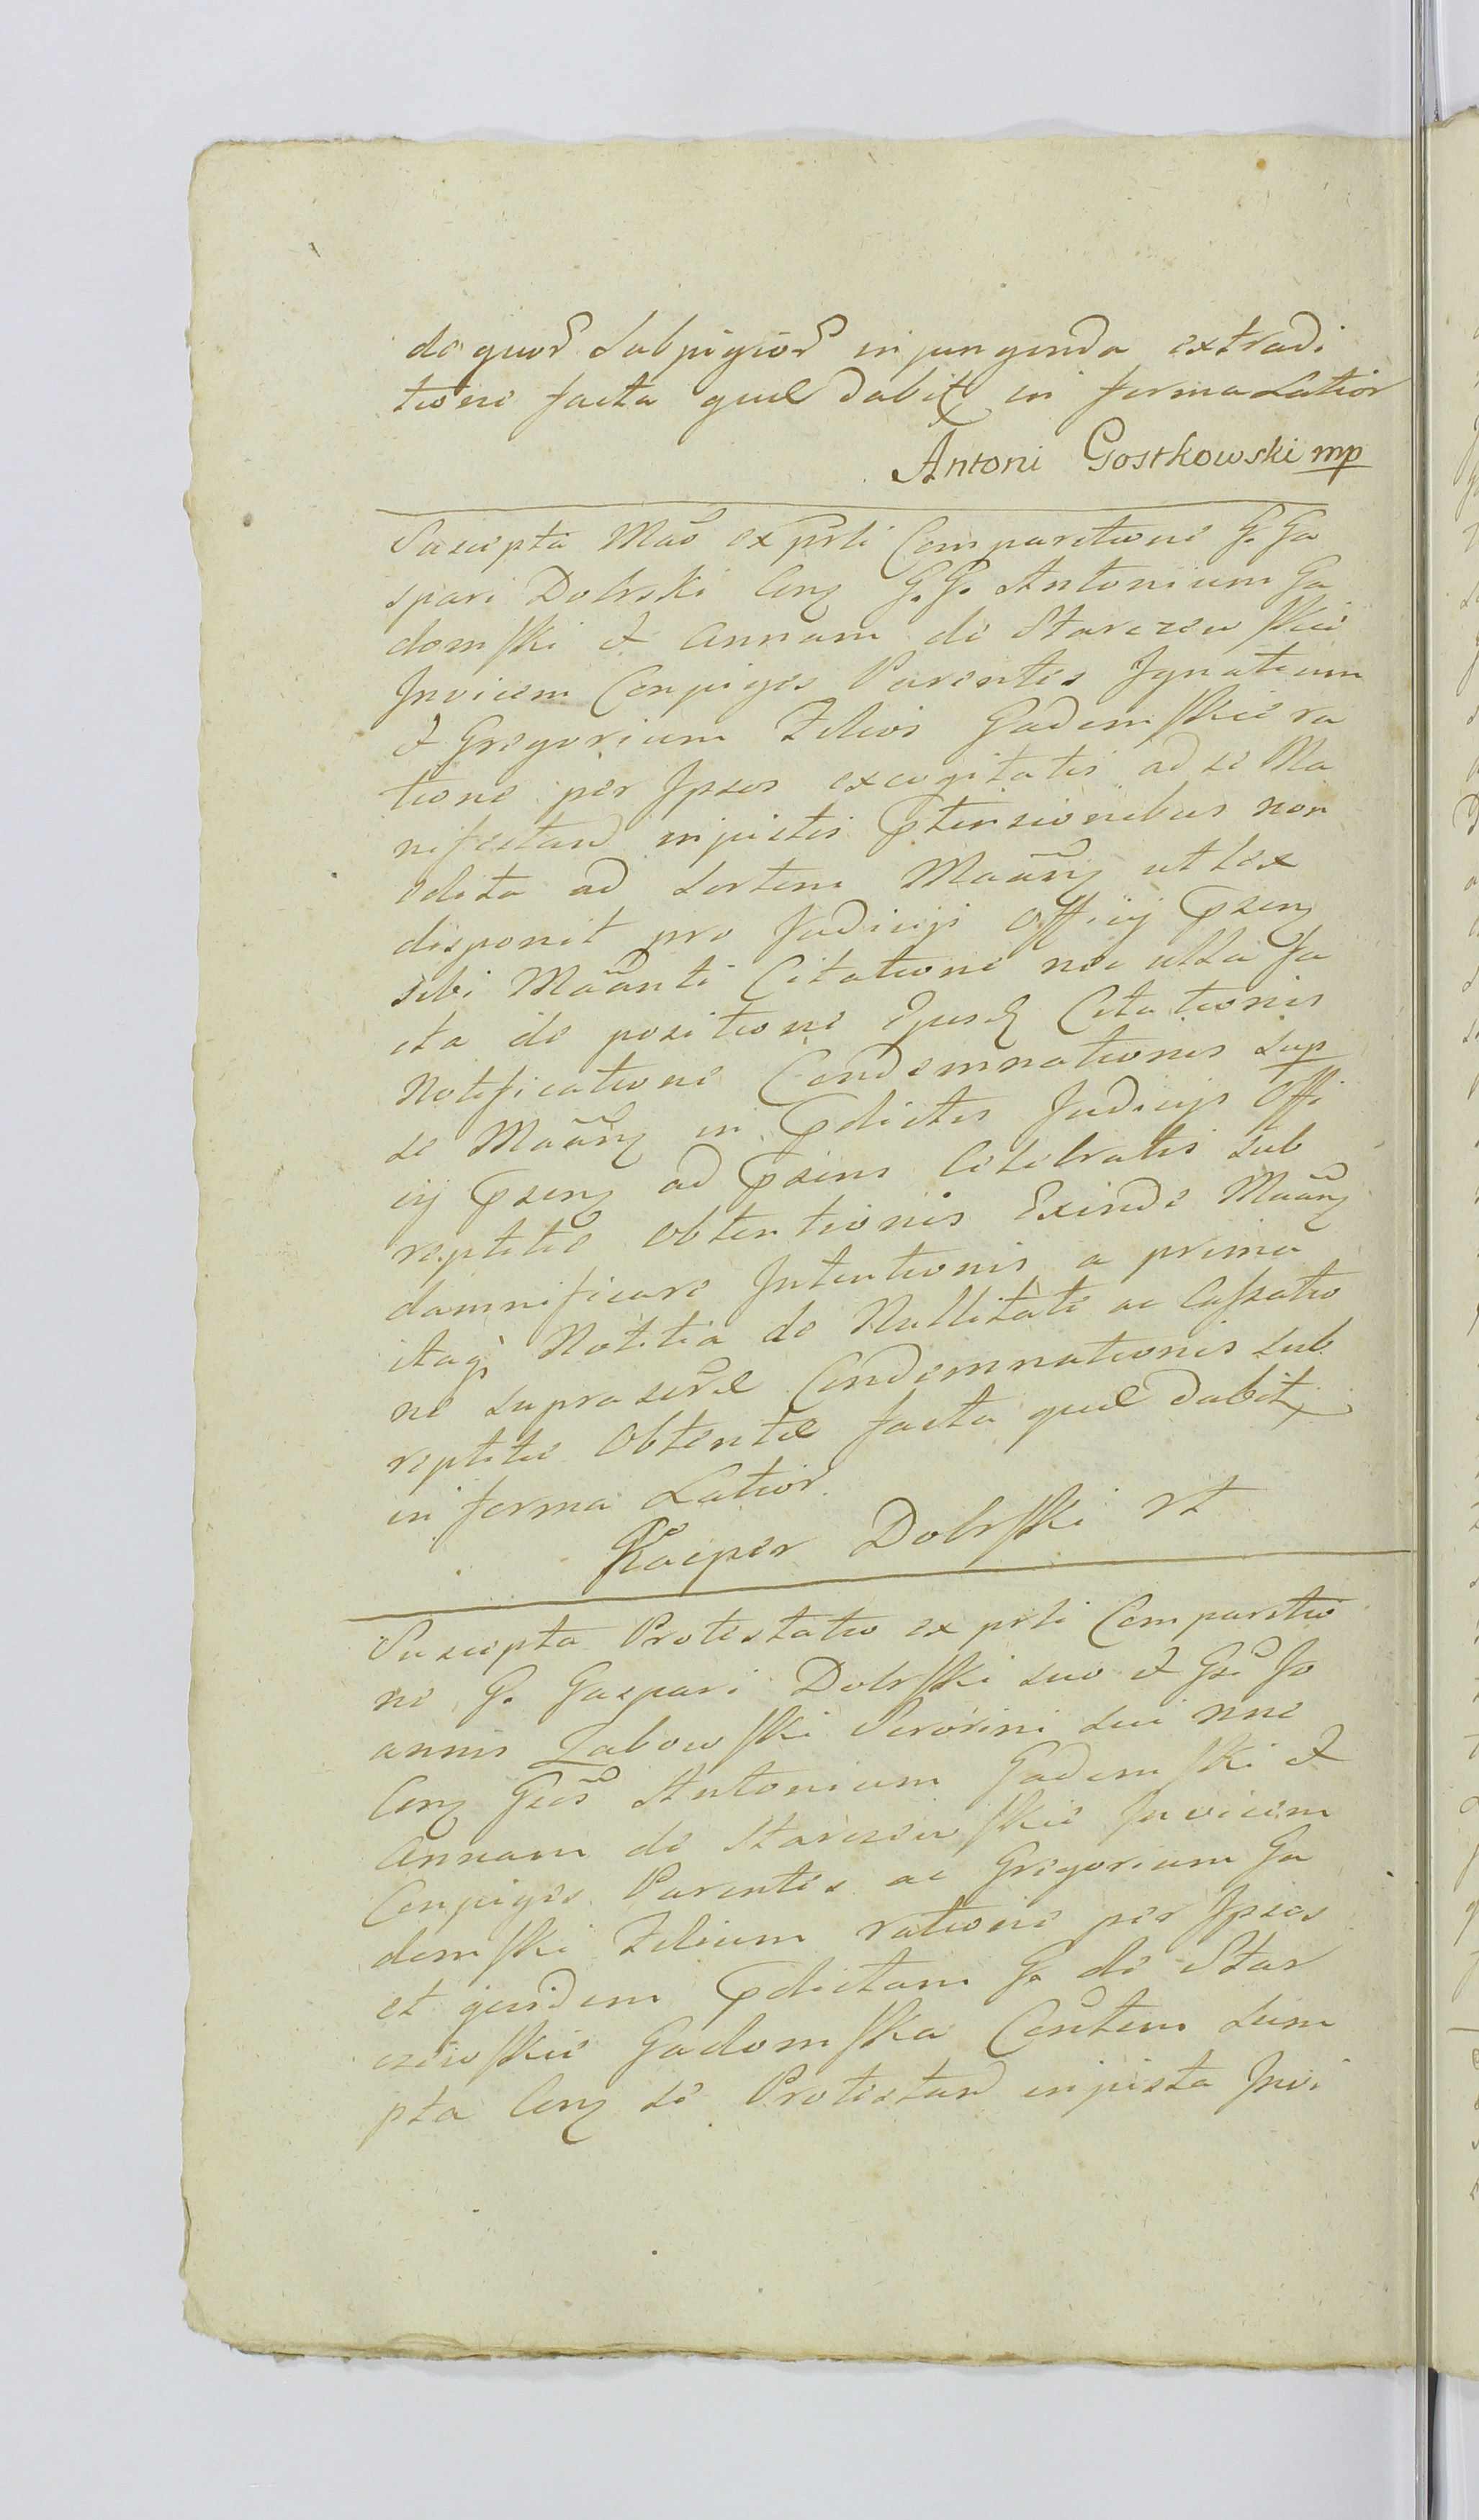 de quor Subpigior injungenda extradi
tione facta quæ dabitz in forma Latior
Antoni Gostkowski mp
Suscepta Mao ex prli Comparitione G. Ga
spari Dobrski Cong G. G. Antonium Ga
domski et Annam de Starczewskie
Invicem Conjuges Parentes Ignatium
et Gregorium Filios Gadomskie ra
tione per Ipsos excogitatis ad se Ma
nifestand injustis Ptensionibus non
edita ad Sortem Maang ut Lex
disponit pro Judicijs Officij Pseng
sibi Maanti Citatione nec ulla fa
cta de positione Ejusd Citationis
Notificatione Condemnationis sup
se Maang in Pdictis Judicijs Offi
cij Pseng ad Psens Celebratis sub
reptitie obtentionis Exinde Maang
damnificare Intentionis a prima
itaq Notitia de Nullitate ac Cassatio
ne suprascræ Condemnationis sub
reptitie Obtentæ facta quæ dabitz
in forma Latior
Kacper Dobrski rt
Suscepta Protestatio ex prli Comparitio
ne G. Gaspari Dobrski suo et Gsi Jo
annis Zabowski Sororini sui nne
Cong Gsos Antonium Gadomski et
Annam de Starczewskie Invicem
Conjuges Parentes ac Gregorium Ga
domski Filium ratione per Ipsos
et quidem Pdictam G. de Star
czewskie Gadomska Contem Sum
pta Cong se Protestand injusta Invi